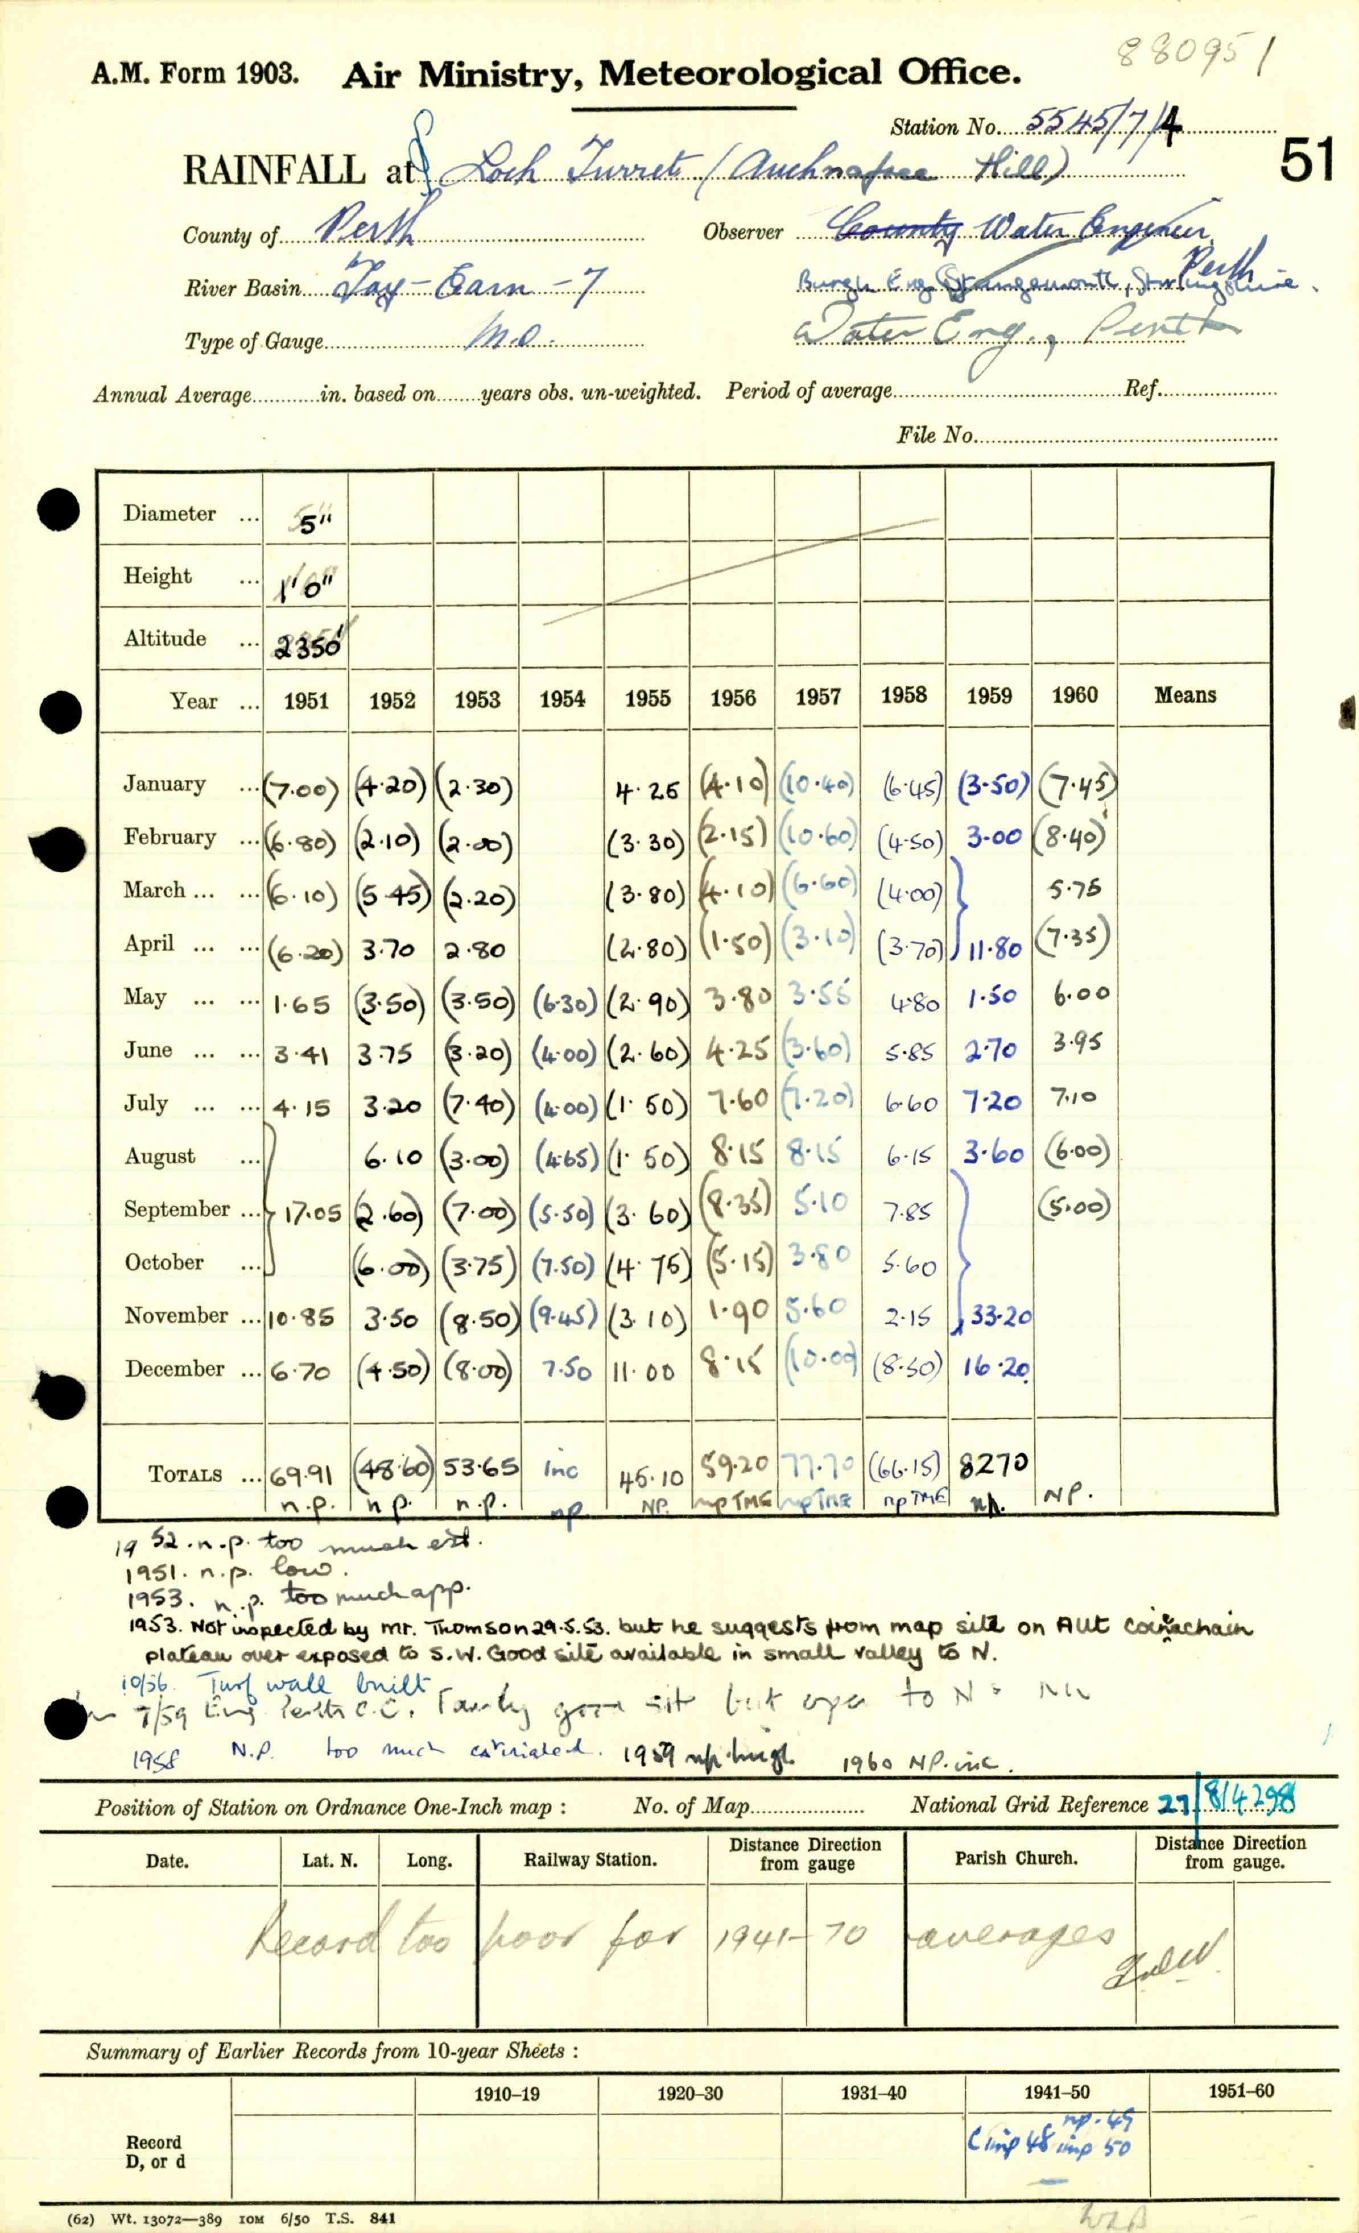 880951
A.M. Form 1903. Air Ministry, Meteorological Office.
Station No. 5545/7/4
51
RAINFALL at Loch Turret (Auchnafree Hill)
County of Perth Observer County Water Engineer,
Perth
River Basin Tay - Earn - 7 Burgh Eng Grangemouth, Stirlingshire.
Type of Gauge M.O. Water Eng., Perth
Annual Average in. based on years obs. un-weighted. Period of average Ref.
File No.
Diameter ... 5"
Height ... 1'0"
Altitude ... 2350'
Year ... 1951 1952 1953 1954 1955 1956 1957 1958 1959 1960 Means
January ... (7.00) (4.20) (2.30) 4.25 (4.10) (10.40) (6.45) (3.50) (7.45)
February ... (6.80) (2.10) (2.00) (3.30) (2.15) (10.60) (4.50) 3.00 (8.40)
March ... ... (6.10) (5.45) (2.20) (3.80) (4.10) (6.60) (4.00) 5.75
April ... ... (6.20) 3.70 2.80 (2.80) (1.50) (3.10) (3.70) 11.80 (7.35)
May ... ... 1.65 (3.50) (3.50) (6.30) (2.90) 3.80 3.55 4.80 1.50 6.00
June ... ... 3.41 3.75 (3.20) (4.00) (2.60) 4.25 (3.60) 5.85 2.70 3.95
July ... ... 4.15 3.20 (7.40) (4.00) (1.50) 7.60 (7.20) 6.60 7.20 7.10
August ... 6.10 (3.00) (4.65) (1.50) 8.15 8.15 6.15 3.60 (6.00)
September ... 17.05 (2.60) (7.00) (5.50) (3.60) (8.35) 5.10 7.85 (5.00)
October ... (6.00) (3.75) (7.50) (4.75) (5.15) 3.80 5.60
November ... 10.85 3.50 (8.50) (9.45) (3.10) 1.90 5.60 2.15 33.20
December ... 6.70 (4.50) (8.00) 7.50 11.00 8.15 (10.00) (8.50) 16.20
TOTALS ... 69.91 (48.60) 53.65 inc 45.10 59.20 77.70 (66.15) 82.70
n.p. n.p. n.p. np NP. np TME np TME np TME np. NP.
1952. n.p. too much est.
1951. n.p. low.
1953. n.p. too much app.
1953. Not inspected by Mr. Thomson 29.5.53. but he suggests from map site on Allt Coinachain
plateau over exposed to S.W. Good site available in small valley to N.
10/56. Turf wall built
7/59 Eng Perth C.C. Fairly good site but open to N
1958 N.P. too much estimated. 1959 np. high. 1960 NP. inc.
Position of Station on Ordnance One-Inch map : No. of Map National Grid Reference 27/814298
Date. Lat. N. Long. Railway Station. Distance from gauge Direction Parish Church. Distance from gauge. Direction
Record too poor for 1941-70 averages
Summary of Earlier Records from 10-year Sheets :
1910–19 1920–30 1931–40 1941–50 1951–60
Record
D, or d
np. 49
C imp 48 imp 50
(62) Wt. 13072—389 10M 6/50 T.S. 841